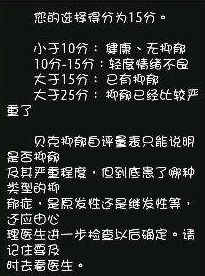 您的选择得分为15分。
小于10分：健康、无抑郁
10分-15分：轻度情绪不良
大于15分：已有抑郁
大于25分：抑郁已经比较严
重了
贝克抑郁自评量表只能说明
是否抑郁
及其严重程度，但到底患了哪种
类型的抑
郁症，是原发性还是继发性等，
还应由心
理医生进一步检查以后确定。请
记住要及
时去看医生。